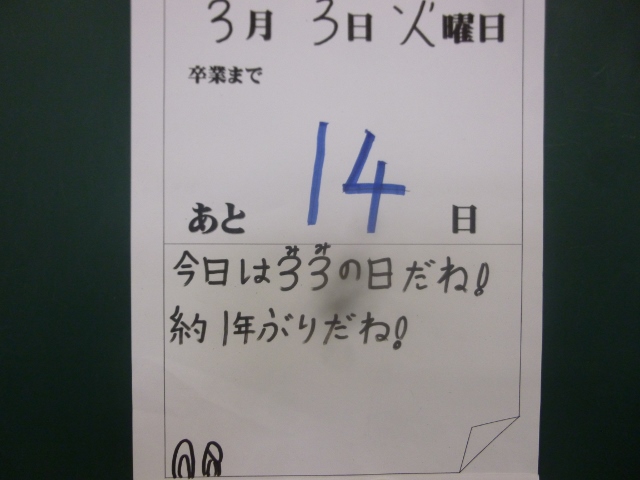 3月 3日 火曜日
卒業まで
あと 14 日
今日は33の日だね!
約1年ぶりだね!